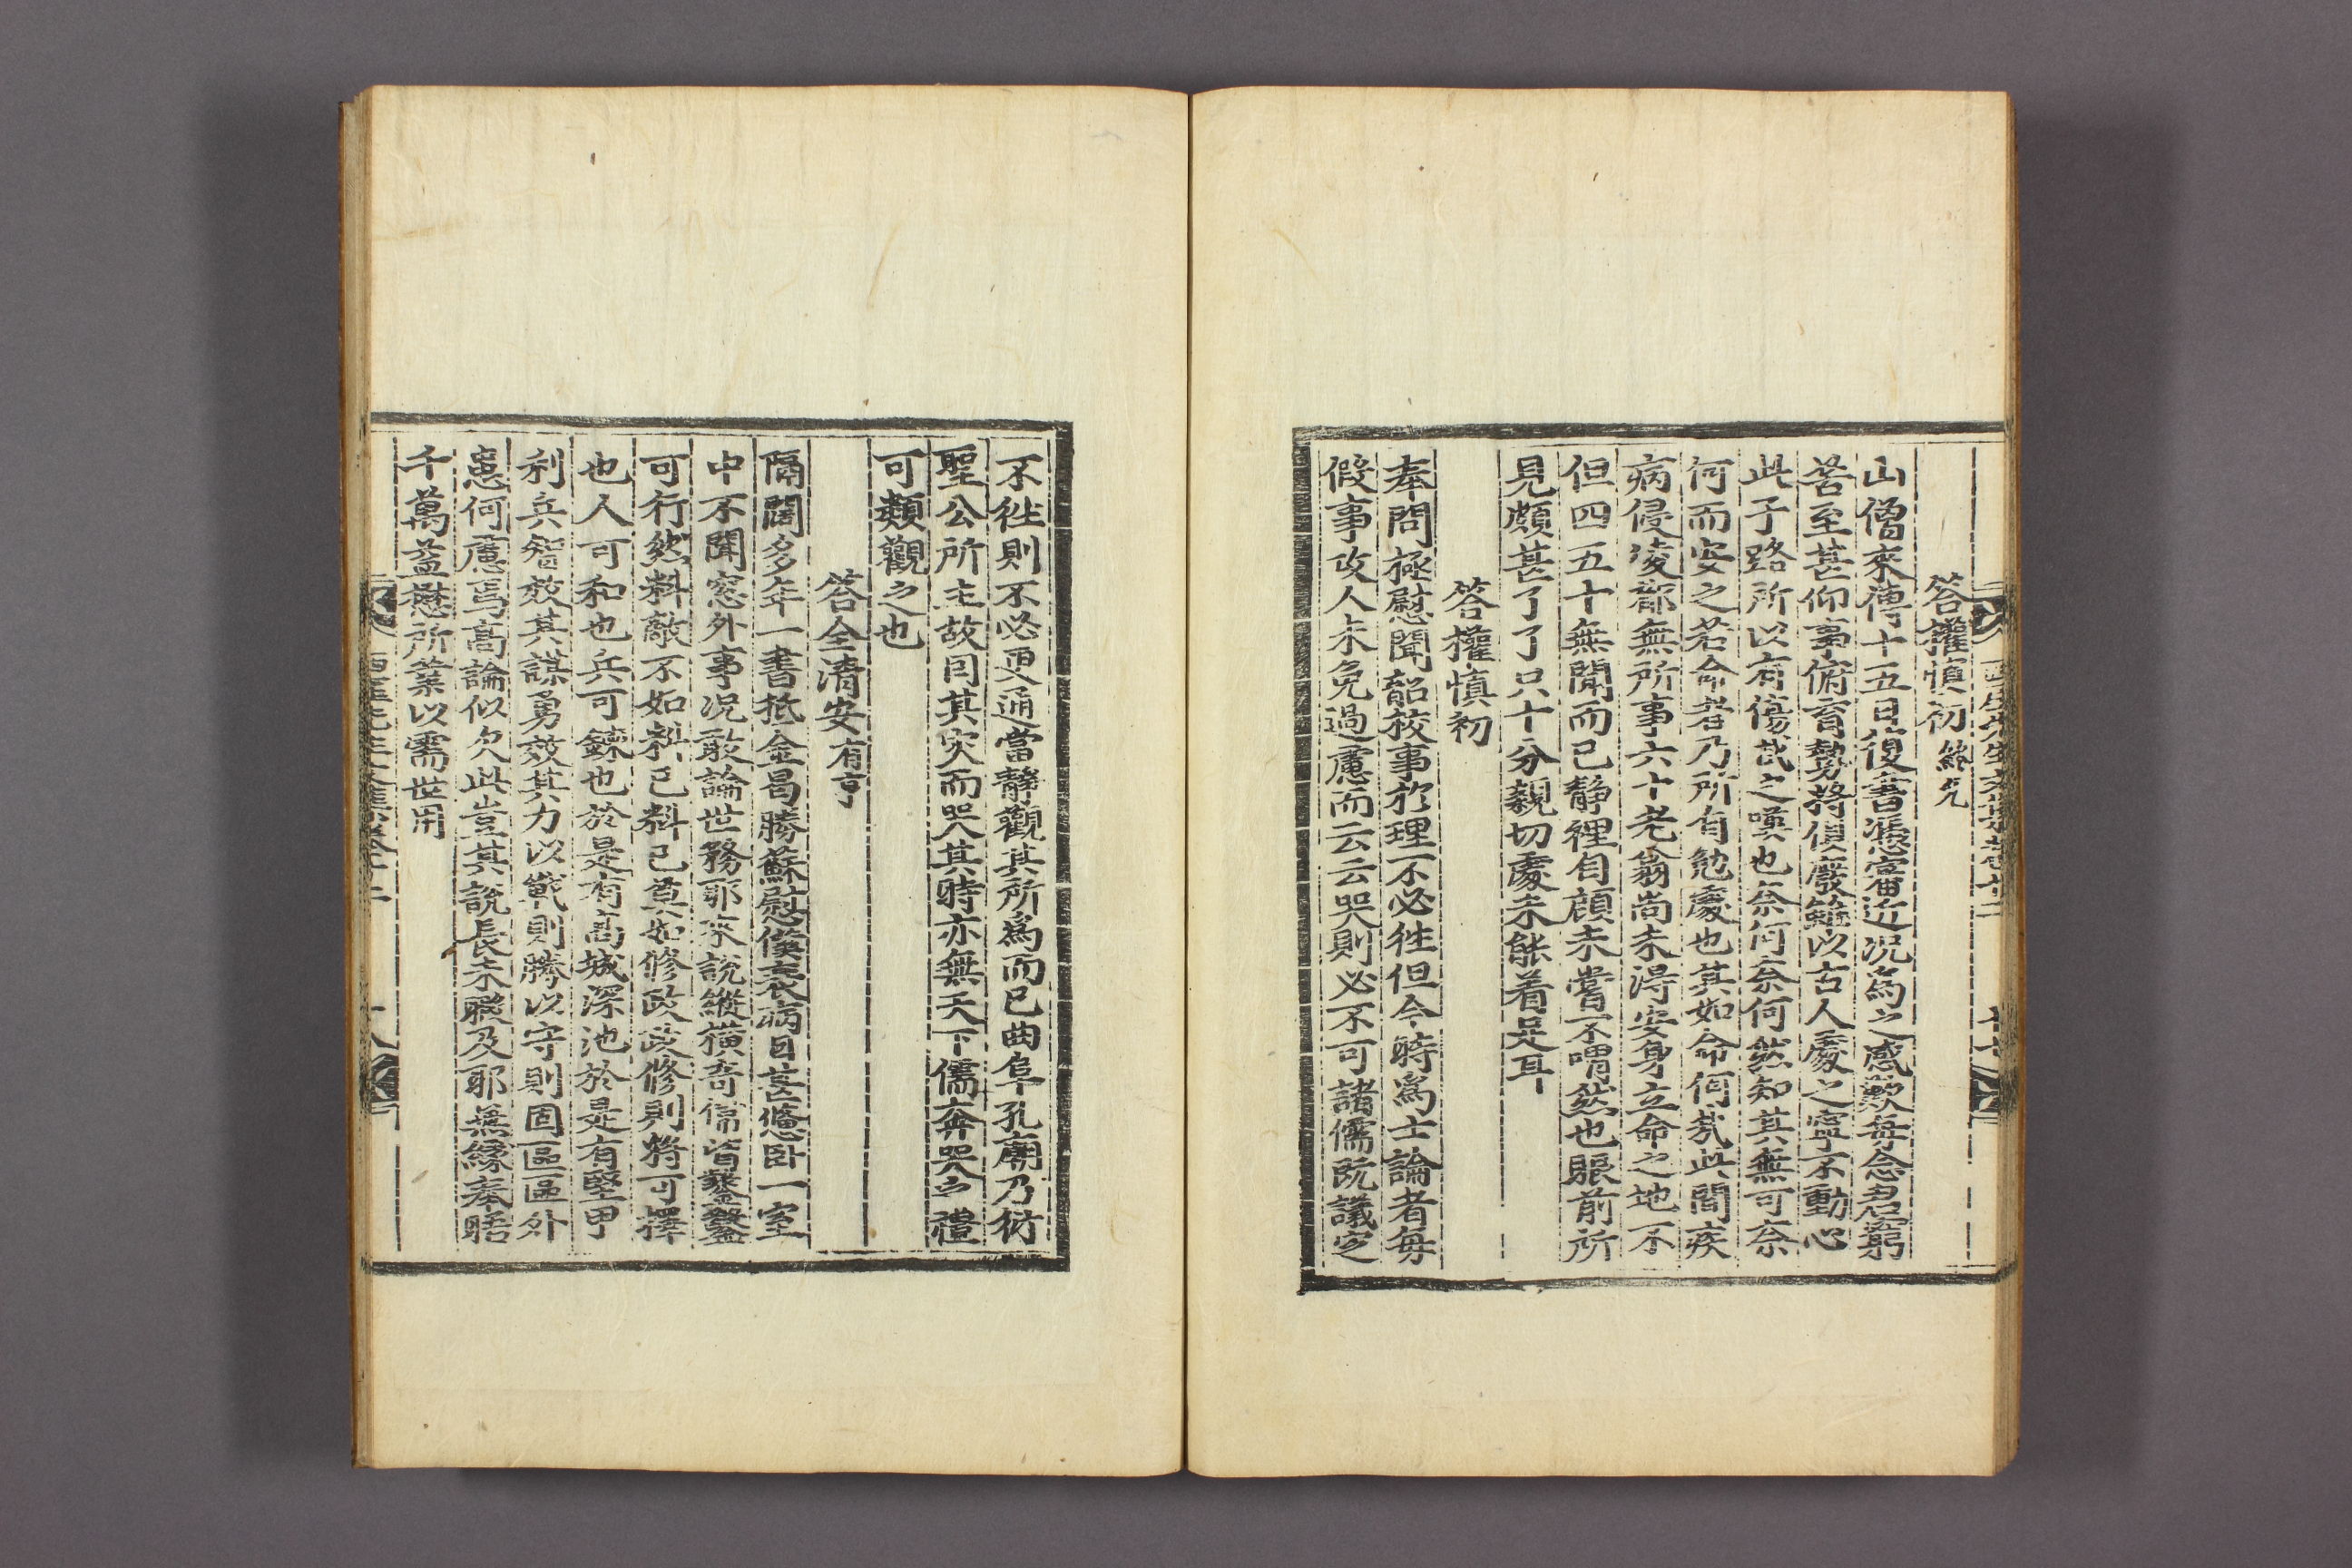 答權慎初
山僧來傳十五日復書憑審近況爲之感歎每念君窮
苦至甚仰事俯育勢將俱廢雖以古人處之寧不動心
此子路所以有傷哉之嘆也奈何奈何然知其無可奈
何而安之若命者乃所有勉處也其如命何哉此間疾
病侵凌都無所事六十老翁尚未得安身立命之地不
但四五十無聞而已靜裡自顧未嘗不喟然也眼前所
見頗甚了了只十分親切處未能着足耳
答權慎初
奉問極慰聞韶校事於理不必往但今時爲士論者每
假事攻人未免過慮而云云哭則必不可諸儒既議定
不往則不必更通當靜觀其所爲而已曲阜孔廟乃衍
聖公所主故因其灾而哭其時亦無天下儒奔哭之禮
可類觀之也
答全淸安有亨
隔闊多年一書抵金昌勝蘇慰僕衰病日甚憊臥一室
中不聞窓外事况敢論世務耶來說縱橫奇偉皆鑿鑿
可行然料敵不如料己料己莫如修政政修則將可擇
也人可和也兵可鍊也於是有高城深池於是有堅甲
利兵智效其謀勇效其力以戰則勝以守則固區區外
患何慮焉高論似欠此豈其說長未暇及耶無緣奉晤
千萬益懋所業以需世用